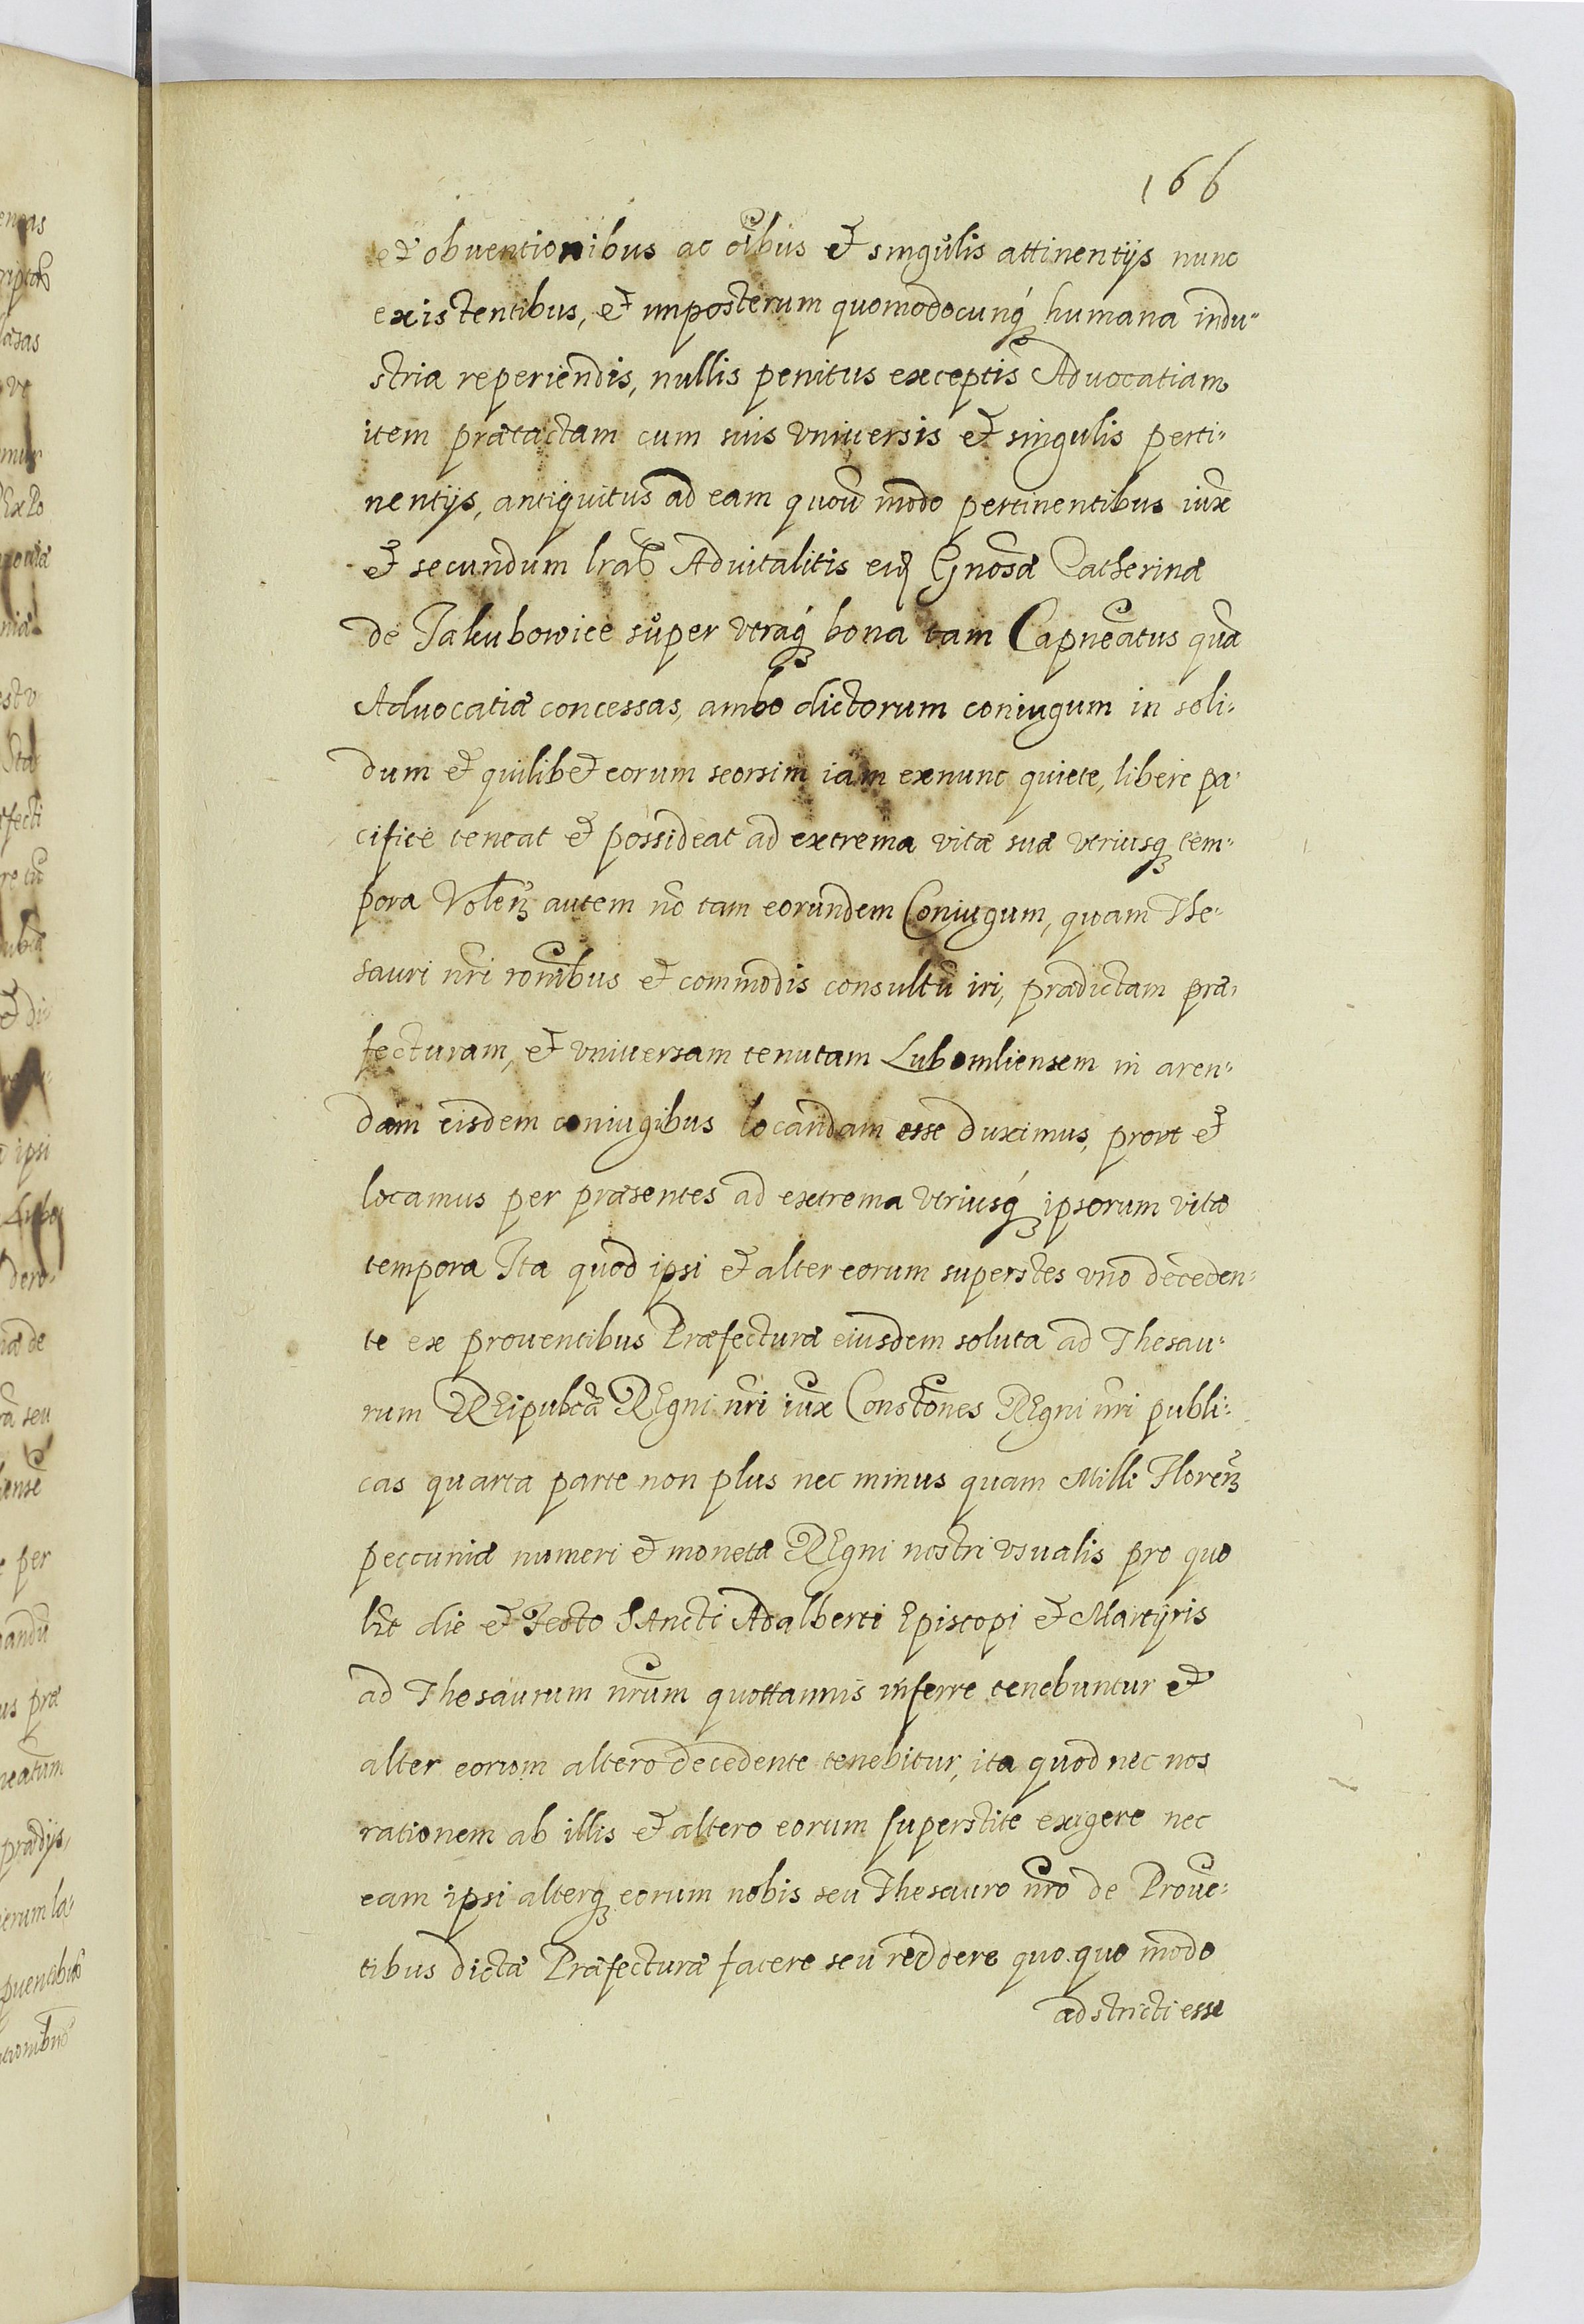 166
et obuentionibus ac oĩbus et singŭlis attinentijs nunc
existentibus, et imposterum quomodocunq́ humana indu-
stria reperiendis, nullis penitus exceptis Aduocatiam
item prætactam cum suis vniuersis et singulis perti-
nentijs, antiquitus ad eam quoũ modo pertinentibus iux̃
et secundum lras Aduitalitis eid Gnosæ Catherinæ
de Jakubowice sŭper vtraq́ bona tam Capneatus quã
Aduocatiæ concessas, ambo dictorum coniugum in soli-
dum et quilibet eorum seorsim iam exnunc quiete, libere pa-
cifice teneat et possideat ad extrema vitæ suæ vtriusq tem-
pora Volen autem nõ tam eorundem Coniugum, quam The-
sauri nr̃i ronibus et commodis consultũ iri, prædictam præ-
fecturam, et vniuersam tenutam Lubomliensem in aren-
dam eisdem coniugibus locandam esse duximus, prout et
locamus per præsentes ad extrema vtriusq́ ipsorum vitæ
tempora Ita quod ipsi et alter eorum superstes vno deceden-
te ex prouentibus Præfecturæ eiusdem soluta ad Thesau-
rum Reipubcæ Regni nr̃i iux̃ Constones Regni nr̃i publi-
cas quarta parte non plus nec minus quam Mille Floren
peccuniæ numeri et monetæ Regni nostri vsualis pro quo
lbt die et Festo Sancti Adalberti Episcopi et Martyris
ad Thesaurum nr̃um quottannis inferre tenebuntur et
alter eorum altero decedente tenebitur, ita quod nec nos
rationem ab illis et altero eorum superstite exigere nec
eam ipsi alterq eorum nobis seu Thesauro nr̃o de Proue-
tibus dictæ Præfecturæ facere seu reddere quo quo modo
adstricti esse